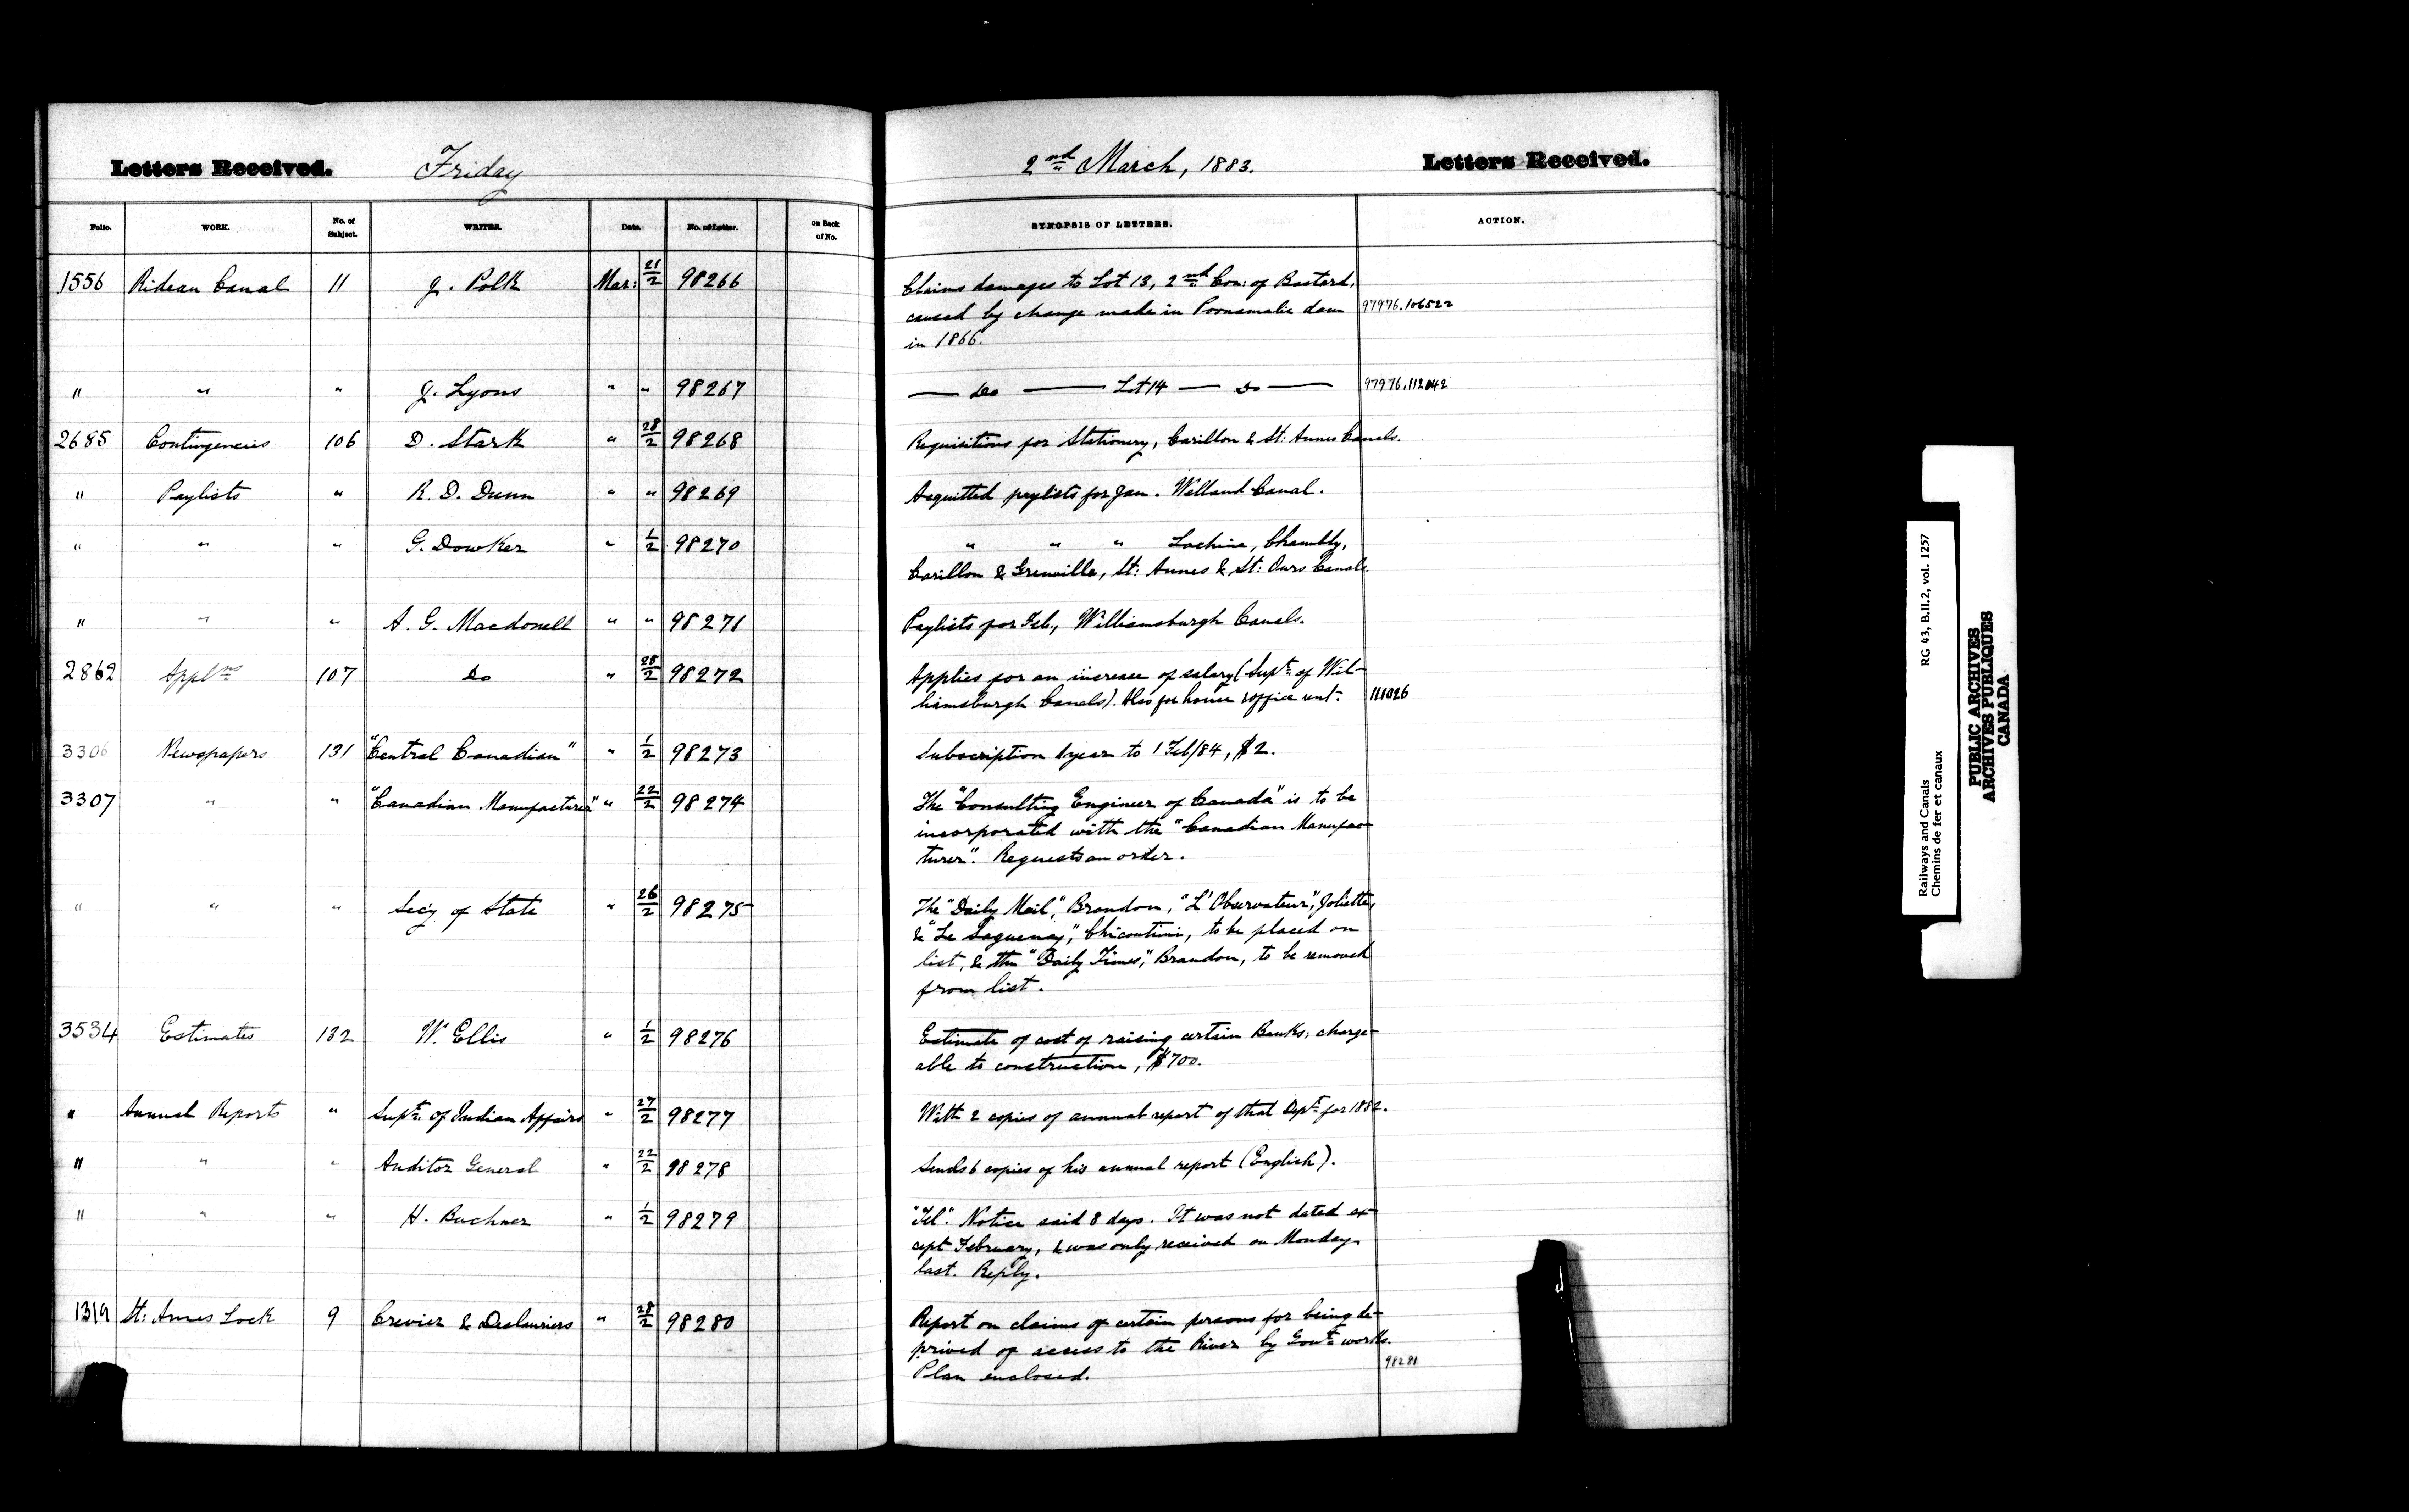 Letters Received. Friday 2nd March, 1883. Letters Received.
Folio. WORK. No. of Subject. WRITER. Date. No. of Letter. on Back of No. SYNOPSIS OF LETTERS. ACTION.
1556 Rideau Canal 11 J. Polk Mar: 21/2 98266 Claims damages to Lot 13, 2nd Con: of Bastard,
caused by change made in Poonamalie dam 97976.106522
in 1866.
" " " J. Lyons " " 98267 — Do — Lot 14 — Do — 97976.112042
2685 Contingencies 106 D. Stark " 28/2 98268 Requisitions for Stationery, Carillon & St: Annes Canals.
" Paylists " R. D. Dunn " " 98269 Acquitted paylists for Jan. Welland Canal.
" " " G. Dowker " 1/2 98270 " " " Lachine, Chambly,
Carillon & Grenville, St: Annes & St: Ours Canals.
" " " A. G. Macdonell " " 98271 Paylists for Feb., Williamsburgh Canals.
2862 Applns 107 Do " 28/2 98272 Applies for an increase of salary (Supt. of Wil-
liamsburgh Canals). Also for house & office rent. 111026
3306 Newspapers 131 "Central Canadian" " 1/2 98273 Subscription 1 year to 1 Feb/84, $2.
3307 " " "Canadian Manufacturer" " 22/2 98274 The "Consulting Engineer of Canada" is to be
incorporated with the "Canadian Manufac-
turer". Requests an order.
" " " Secy of State " 26/2 98275 The "Daily Mail", Brandon, "L'Observateur", Joliette,
& "Le Saguenay", Chicoutimi, to be placed on
list, & the "Daily Times", Brandon, to be removed
from list.
3534 Estimates 132 W. Ellis " 1/2 98276 Estimate of cost of raising certain Banks; charge-
able to construction, $700.
" Annual Reports " Supt. of Indian Affairs " 27/2 98277 With 2 copies of annual report of that Dept. for 1882.
" " " Auditor General " 22/2 98278 Sends 6 copies of his annual report (English).
" " " H. Buchner " 1/2 98279 "Tel". Notice said 8 days. It was not dated ex-
cept February, & was only received on Monday
last. Reply.
1319 St: Annes Lock 9 Crevier & Deslauriers " 28/2 98280 Report on claims of certain persons for being de-
prived of access to the River by Govt. works.
Plan enclosed. 98281
Railways and Canals RG 43, B.II.2, vol. 1257
Chemins de fer et canaux
PUBLIC ARCHIVES
ARCHIVES PUBLIQUES
CANADA